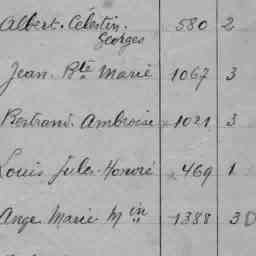 Albert. Célestin. 580 2
Georges
Jean Bte Marie 1067 3
Bertrand Ambroise 1021 3
Louis Jules Honoré 469 1
Ange Marie Min 1388 3